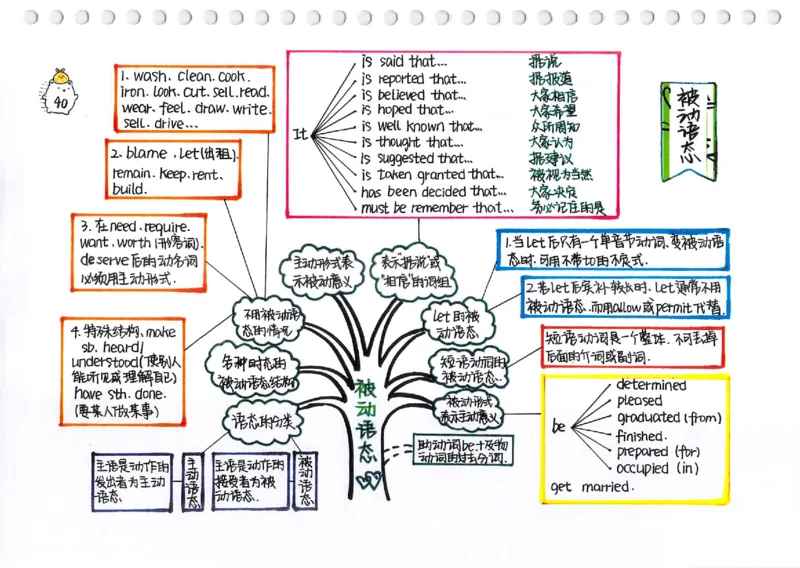 40
被动语态
1. wash. clean. cook.
iron. look. cut. sell. read.
wear. feel. draw. write.
sell. drive...
2. blame. let(出租).
remain. keep. rent.
build.
3. 在need. require.
want. worth(形容词).
deserve后的动名词
必须用主动形式.
4. 特殊结构. make
sb. heard/
understood(使别人
能听见或理解自己)
have sth. done.
(要某人做某事)
It
is said that... 据说
is reported that... 据报道
is believed that... 大家相信
is hoped that... 大家希望
is well known that... 众所周知
is thought that... 大家认为
is suggested that... 据建议
is taken granted that... 被视为当然
has been decided that... 大家决定
must be remember that... 务必记住的是
主动形式表
示被动意义
表示"据说"或
"相信"的词组
不用被动语
态的情况
let的被
动语态.
各种时态的
被动语态结构
短语动词的
被动语态.
语态的分类
被动形式
表示主动意义
被动语态
1.当let后只有一个单音节动词.变被动语
态时.可用不带to的不定式.
2.若let后宾补较长时.let通常不用
被动语态.而用allow或permit代替.
短语动词是一个整体.不可丢掉
后面的介词或副词.
be
determined
pleased
graduated (from)
finished.
prepared (for)
occupied (in)
get married.
助动词be+及物
动词的过去分词.
主语是动作的
发出者为主动
语态.
主动语态
主语是动作的
接受者为被
动语态.
被动语态